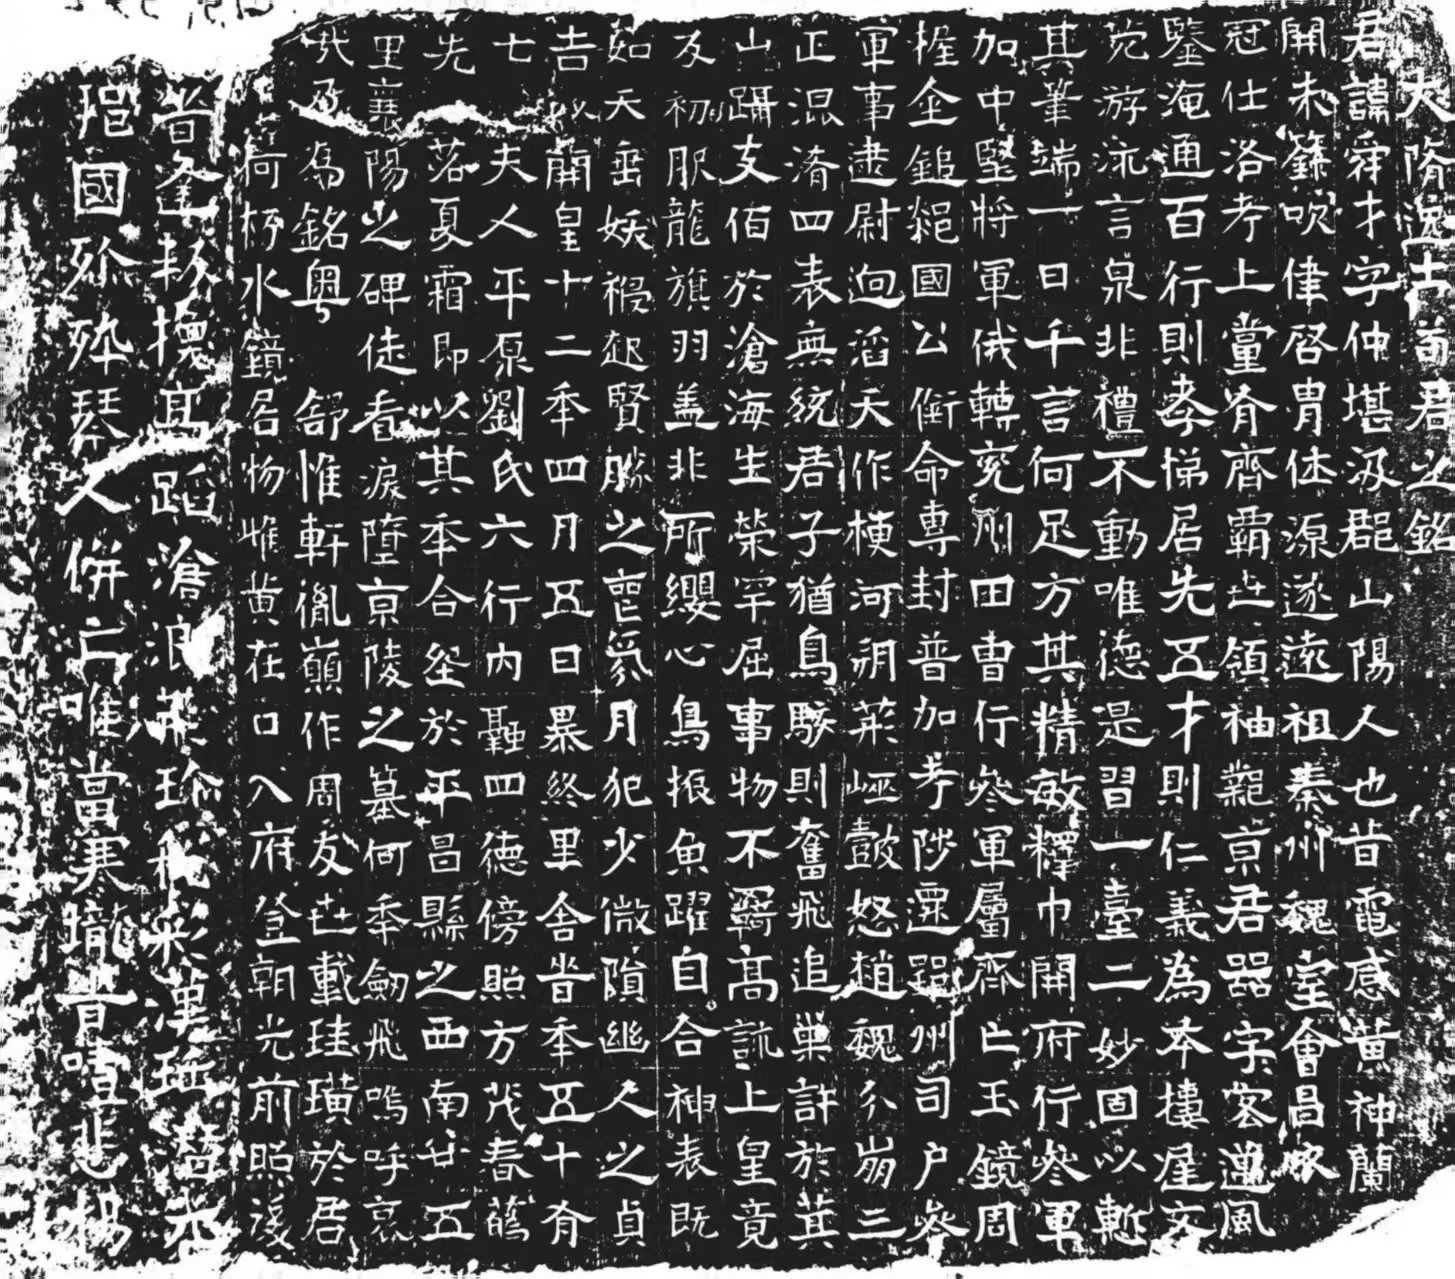 大隋逸士前君之銘
君諱舜才字仲堪汲郡山陽人也昔電感黃神蘭
開未籙吹律啓胄伭源遂遠祖秦州魏室會昌
冠仕洛考上黨脊齊霸世領袖亰君器宇客遵風
鑒淹通百行則孝悌居先五才則仁義為本摟遅文
苑游泳言泉非禮不動唯德是習一臺二妙固以慙
其筆端一日千言何足方其精敏釋巾開府行叅軍
加中堅將軍俄轉兖州田曹行叅軍屬齊亡玉鏡周
握金鎚䋲國公衘命専封普加考陟還邕州司户叅
軍事逮尉迥滔天作梗河朔䓇㟴鼓怒趙魏分崩三
正混淆四表無統君子猶鳥駭則奮飛追巢許於萁
山躡支伯於滄海生榮罕屈事物不羇高訛上皇竟
反初服龍旗羽盖非所纓心鳥振魚躍自合神表既
如天垂妖祲起賢勝之亶氛月犯少微隕幽人之貞
吉以開皇十二秊四月五日暴終里舍旹秊五十有
七夫人平原劉氏六行内融四徳傍照方茂春蘤
先落夏霜即以其秊合塟於平昌縣之西南廿五
里襄陽之碑徒看淚墮亰陵之墓何秊劒飛嗚呼哀
㢤乃為銘粤
舒惟軒胤巔作周友世載珪璜於君
荷柯水鏡居物雌黄在口入府登朝光前照後
昔逢𠡠㧾髙蹈滄浪莱珍和彩運
邕國殄殁琴人併亡唯當寒壠昔𠷣悲楊